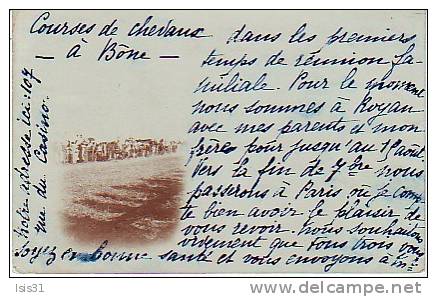 Courses de chevaux
— à Bône —
dans les premiers
temps de réunion fa-
miliale. Pour le moment
nous sommes à Royan
avec mes parents et mon
frère pour jusqu'au 1er août.
Vers la fin de 7bre nous
passerons à Paris où je comp
te bien avoir le plaisir de
vous revoir. Nous souhaitons
vivement que tous trois vous
soyez en bonne santé et vous envoyons à m^e
Notre adresse ici: 107
rue du Casino.
Isis31
delcampe.net